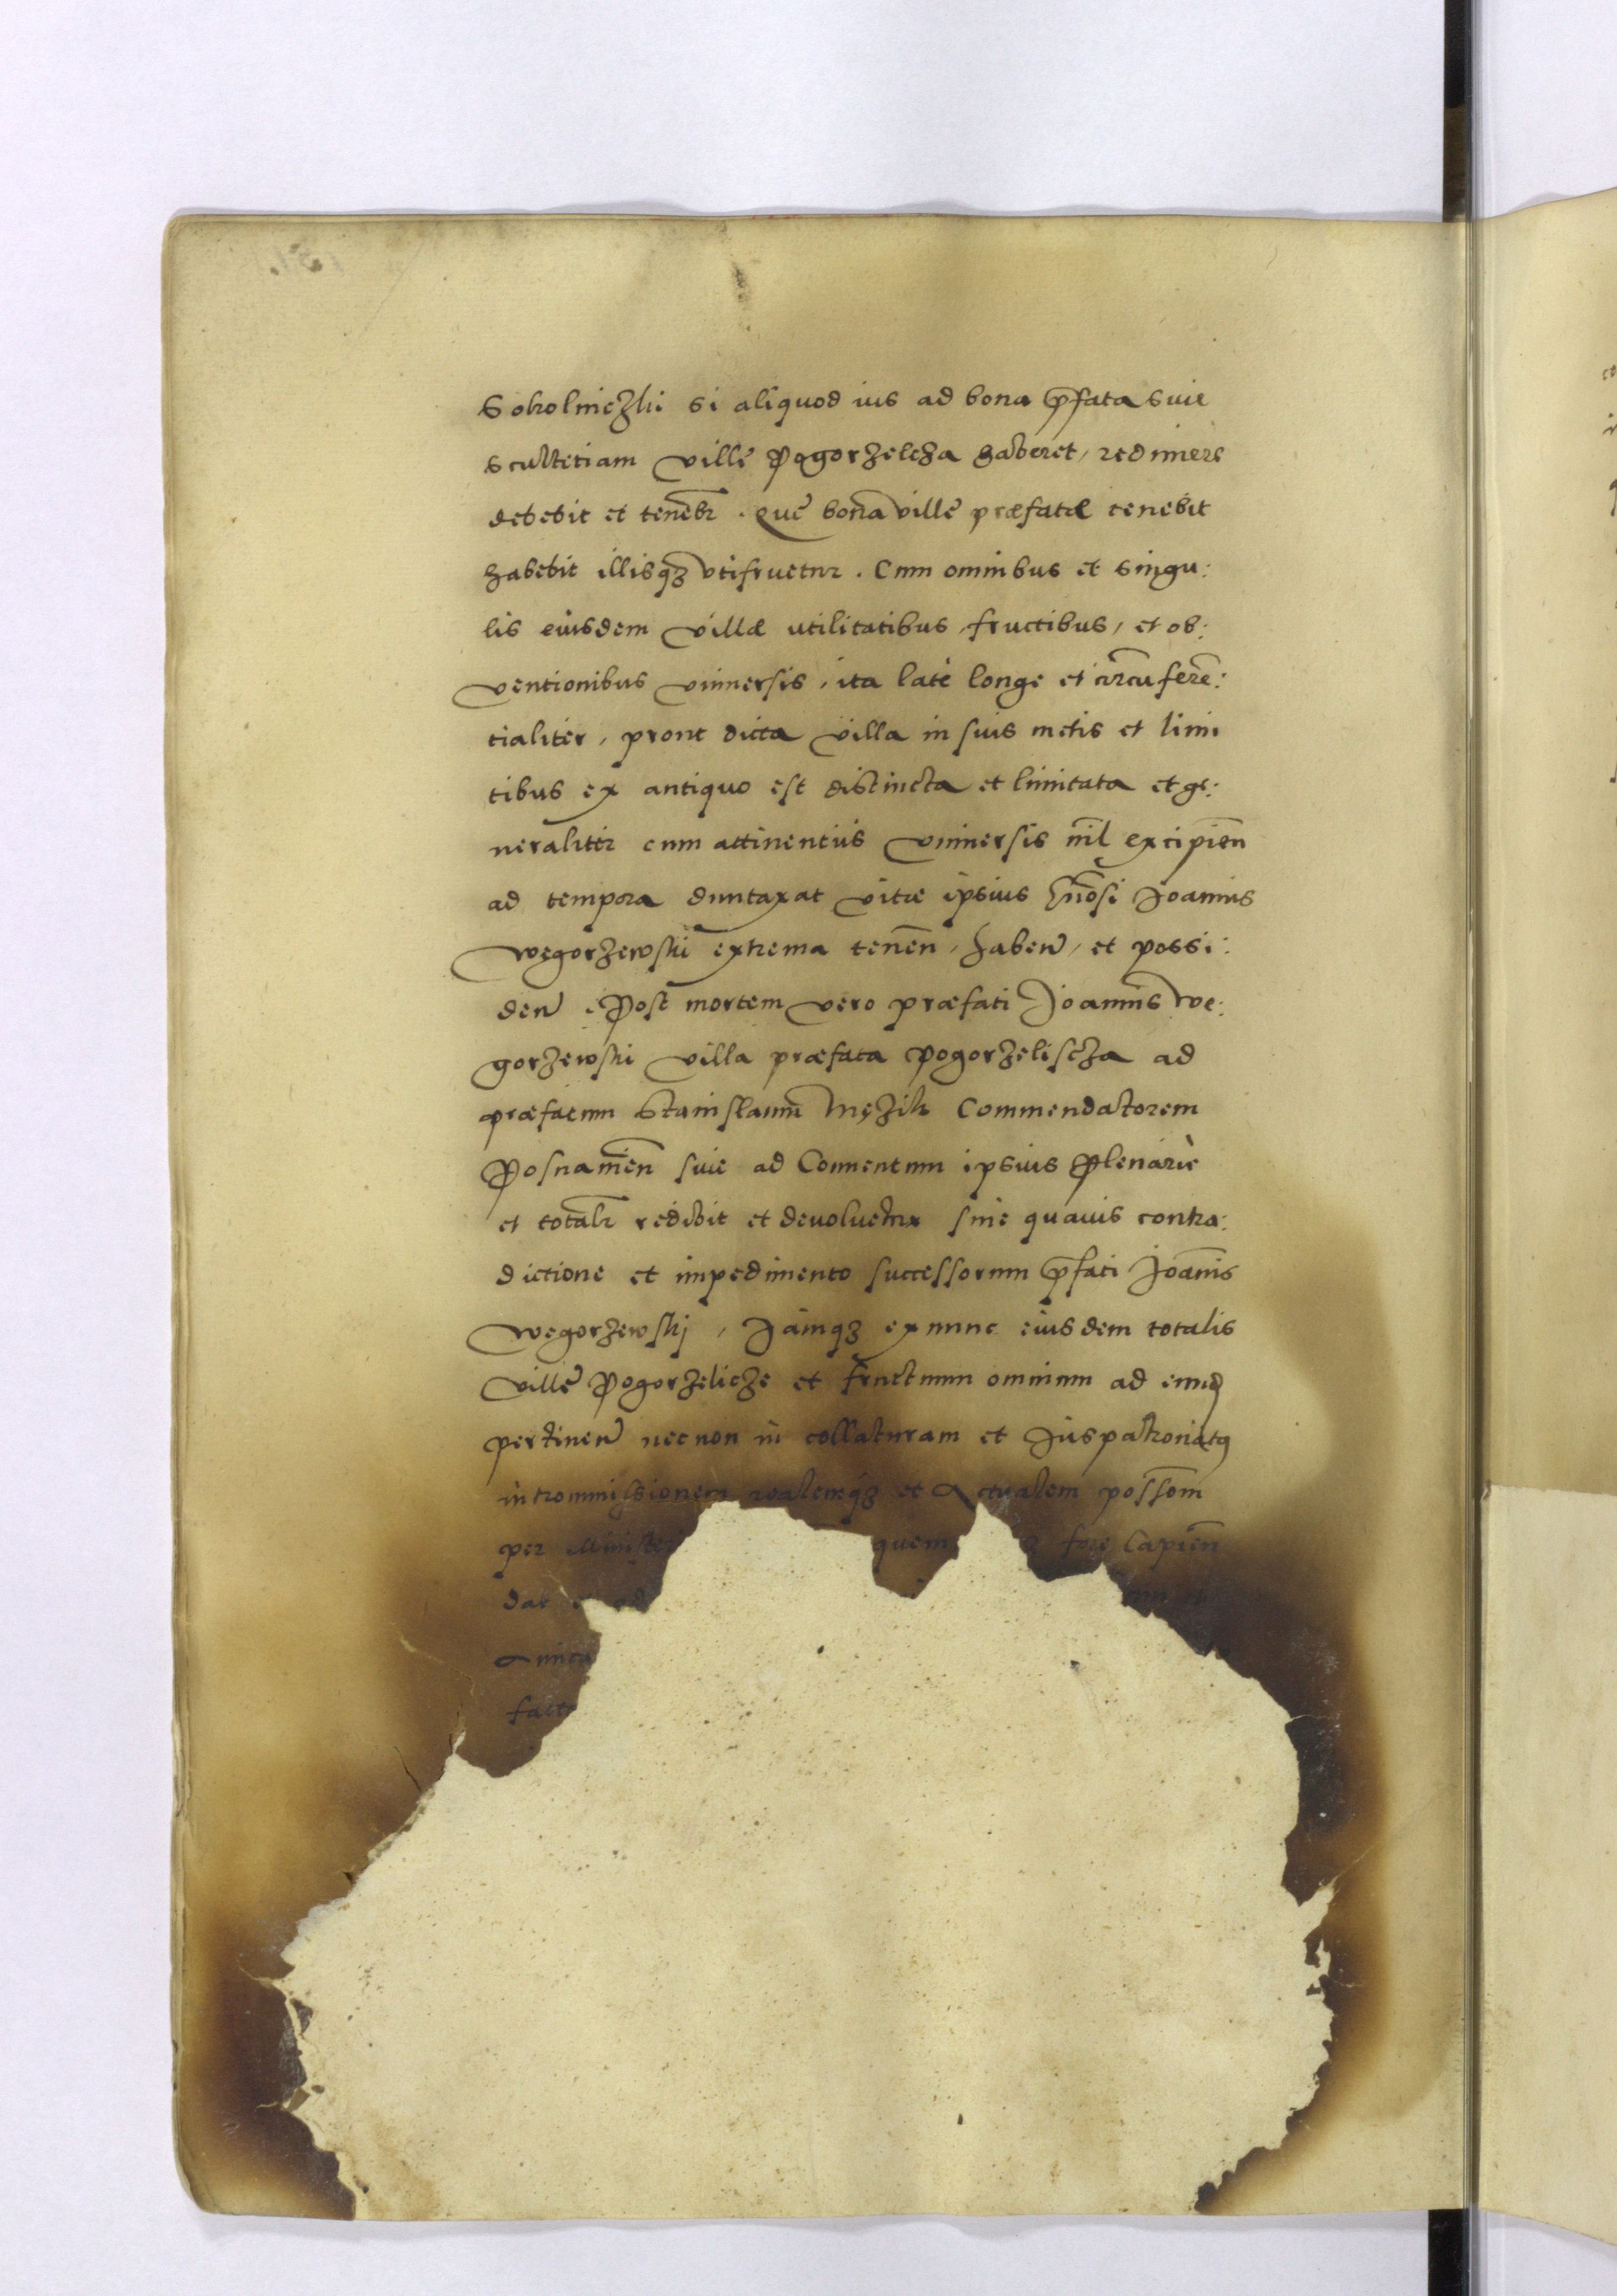 Sokolniczki si aliquod ius ad bona p̄fata siue
scultetiam ville Pogorzelcza haberet, redimere
debebit et teneb̄r. Que bona ville præfatæ tenebit
habebit illisqꝫ vtifruetur. Cum omnibus et singu:
lis eiusdem villæ utilitatibus, fructibus, et ob:
ventionibus vniuersis, ita late longe et circūferē:
tialiter, prout dicta villa in suis metis et limi
tibus ex antiquo est distincta et limitata et ge:
neraliter cum attinentiis vniuersis nīl excipien̄
ad tempora duntaxat vitæ ipsius Gn̄osi Joannis
Wegorzewski extrema tenen̄, haben̄, et possi:
den̄. Post mortem vero præfati Joannis We:
gorzewski villa præfata Pogorzelischa ad
præfatum Stanislaum Mężik Commendatorem
Posnanien̄ siue ad Conuentum ipsius plenarie
et totalr̄ redibit et devoluetur sine quauis contra:
dictione et impedimento successorum p̄fati Joān̄is
Wegorzewskj, Jamqꝫ ex nunc eiusdem totalis
ville Pogorzelicze et fructuum omnium ad eund
pertinen̄ necnon in collaturam et Juspatronatꝰ
intromissionem realemqꝫ et Actualem possōm
per Minister quem fore Capien̄
dat
Amica
fact